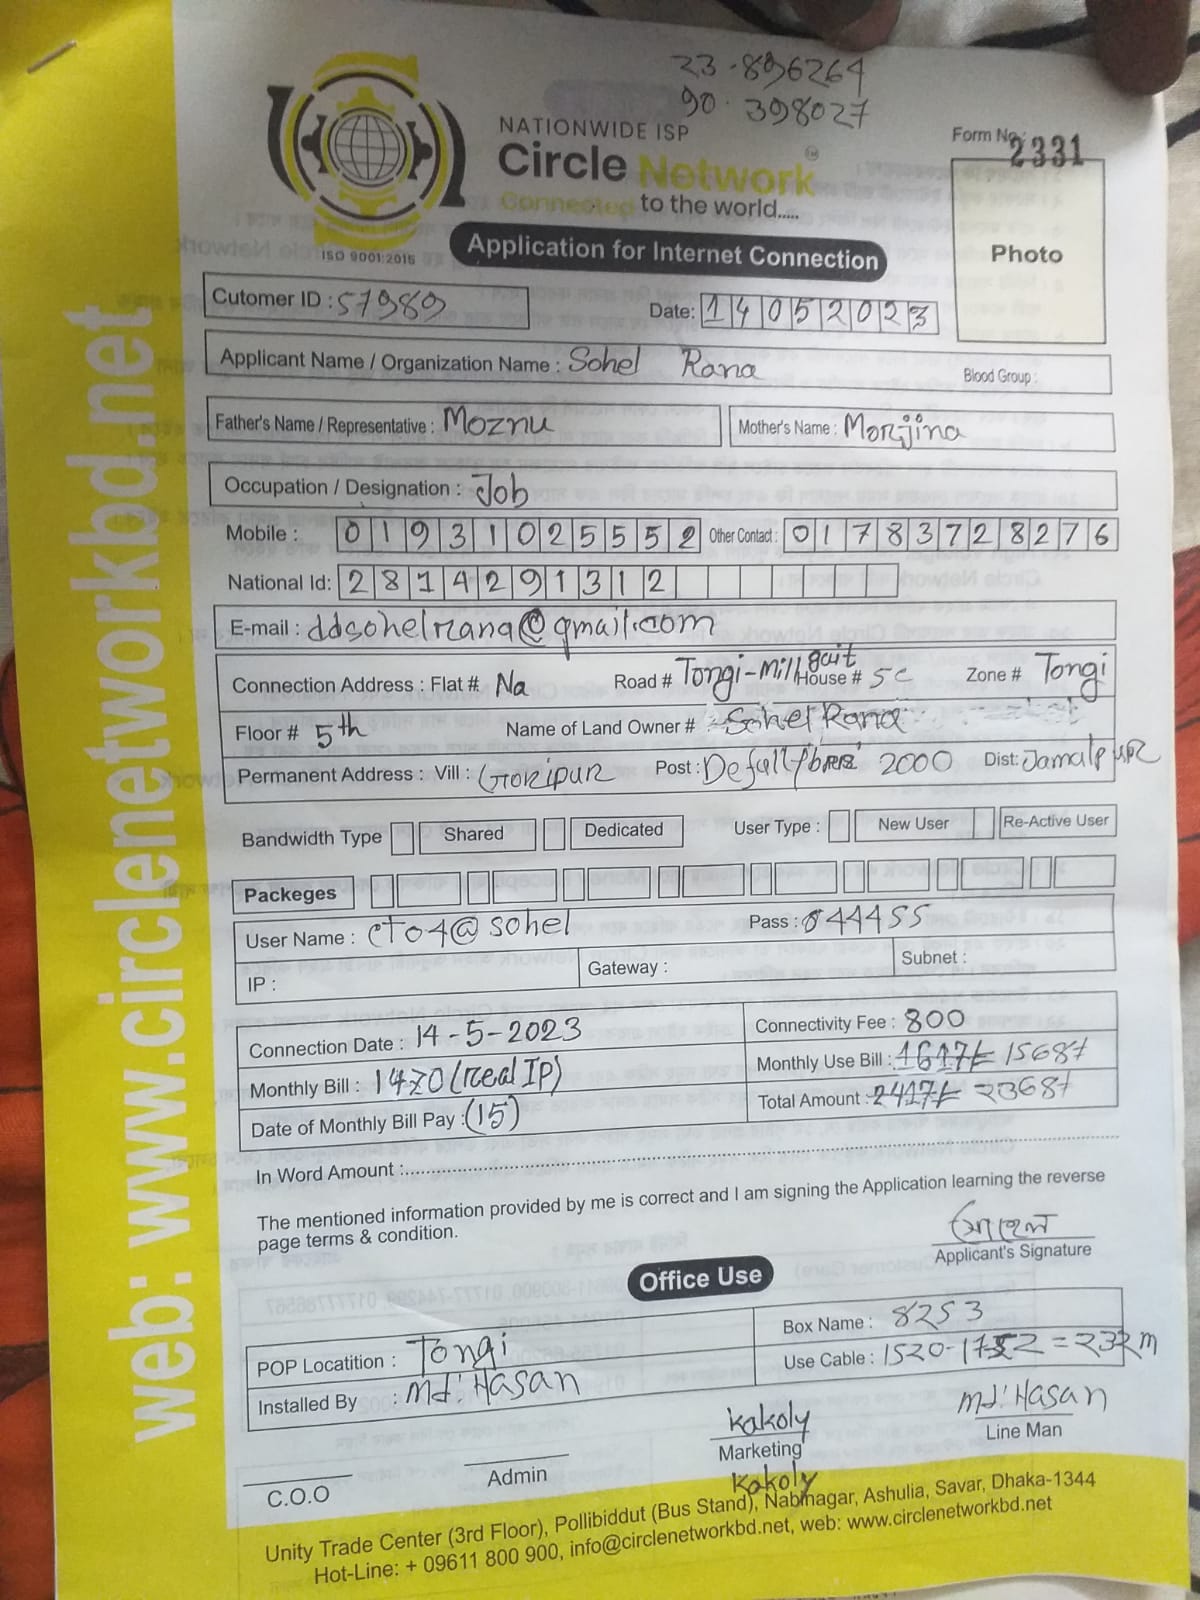 23-896264
90.398027
NATIONWIDE ISP
Form No: 2331
Circle Network
Connected to the world.....
ISO 9001:2015
Application for Internet Connection
Photo
Cutomer ID : 57989
Date: 14052023
Applicant Name / Organization Name : Sohel Rana
Blood Group :
Father's Name / Representative : Moznu
Mother's Name : Morijina
Occupation / Designation : Job
Mobile : 01931025552 Other Contact : 01783728276
National Id: 2814291312
E-mail : ddsohelrana@gmail.com
Connection Address : Flat # Na Road # Tongi-Mill gait House # 5c Zone # Tongi
Floor # 5th Name of Land Owner # Sohel Rana
Permanent Address : Vill : Goripur Post : 2000 Dist: Jamalpur
Bandwidth Type Shared Dedicated User Type : New User Re-Active User
Packeges
User Name : cto4@sohel Pass : 044455
IP : Gateway : Subnet :
Connection Date : 14-5-2023 Connectivity Fee : 800
Monthly Bill : 1470 (Real IP) Monthly Use Bill : 1617/= 1568/
Date of Monthly Bill Pay : (15) Total Amount : 2417/= 2368/
In Word Amount :
The mentioned information provided by me is correct and I am signing the Application learning the reverse
page terms & condition.
সোহেল
Applicant's Signature
Office Use
POP Locatition : Tongi Box Name : 8253
Installed By : Md. Hasan Use Cable : 1520-1752 = 232m
kakoly Md. Hasan
C.O.O Admin Marketing Line Man
Kakoly
Unity Trade Center (3rd Floor), Pollibiddut (Bus Stand), Nabinagar, Ashulia, Savar, Dhaka-1344
Hot-Line: + 09611 800 900, info@circlenetworkbd.net, web: www.circlenetworkbd.net
web: www.circlenetworkbd.net